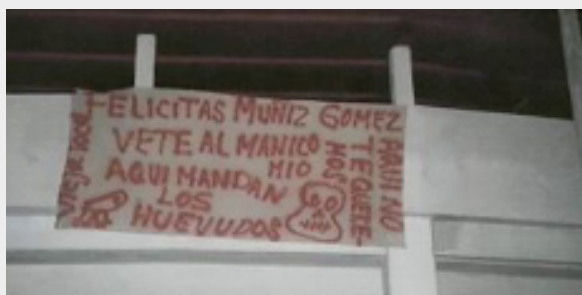 FELICITAS MUÑIZ GOMEZ
VETE AL MANICO
MIO
AQUI MANDAN
LOS
HUEVUDOS
AQUI NO
TE QUERE-
MOS
VIEJA